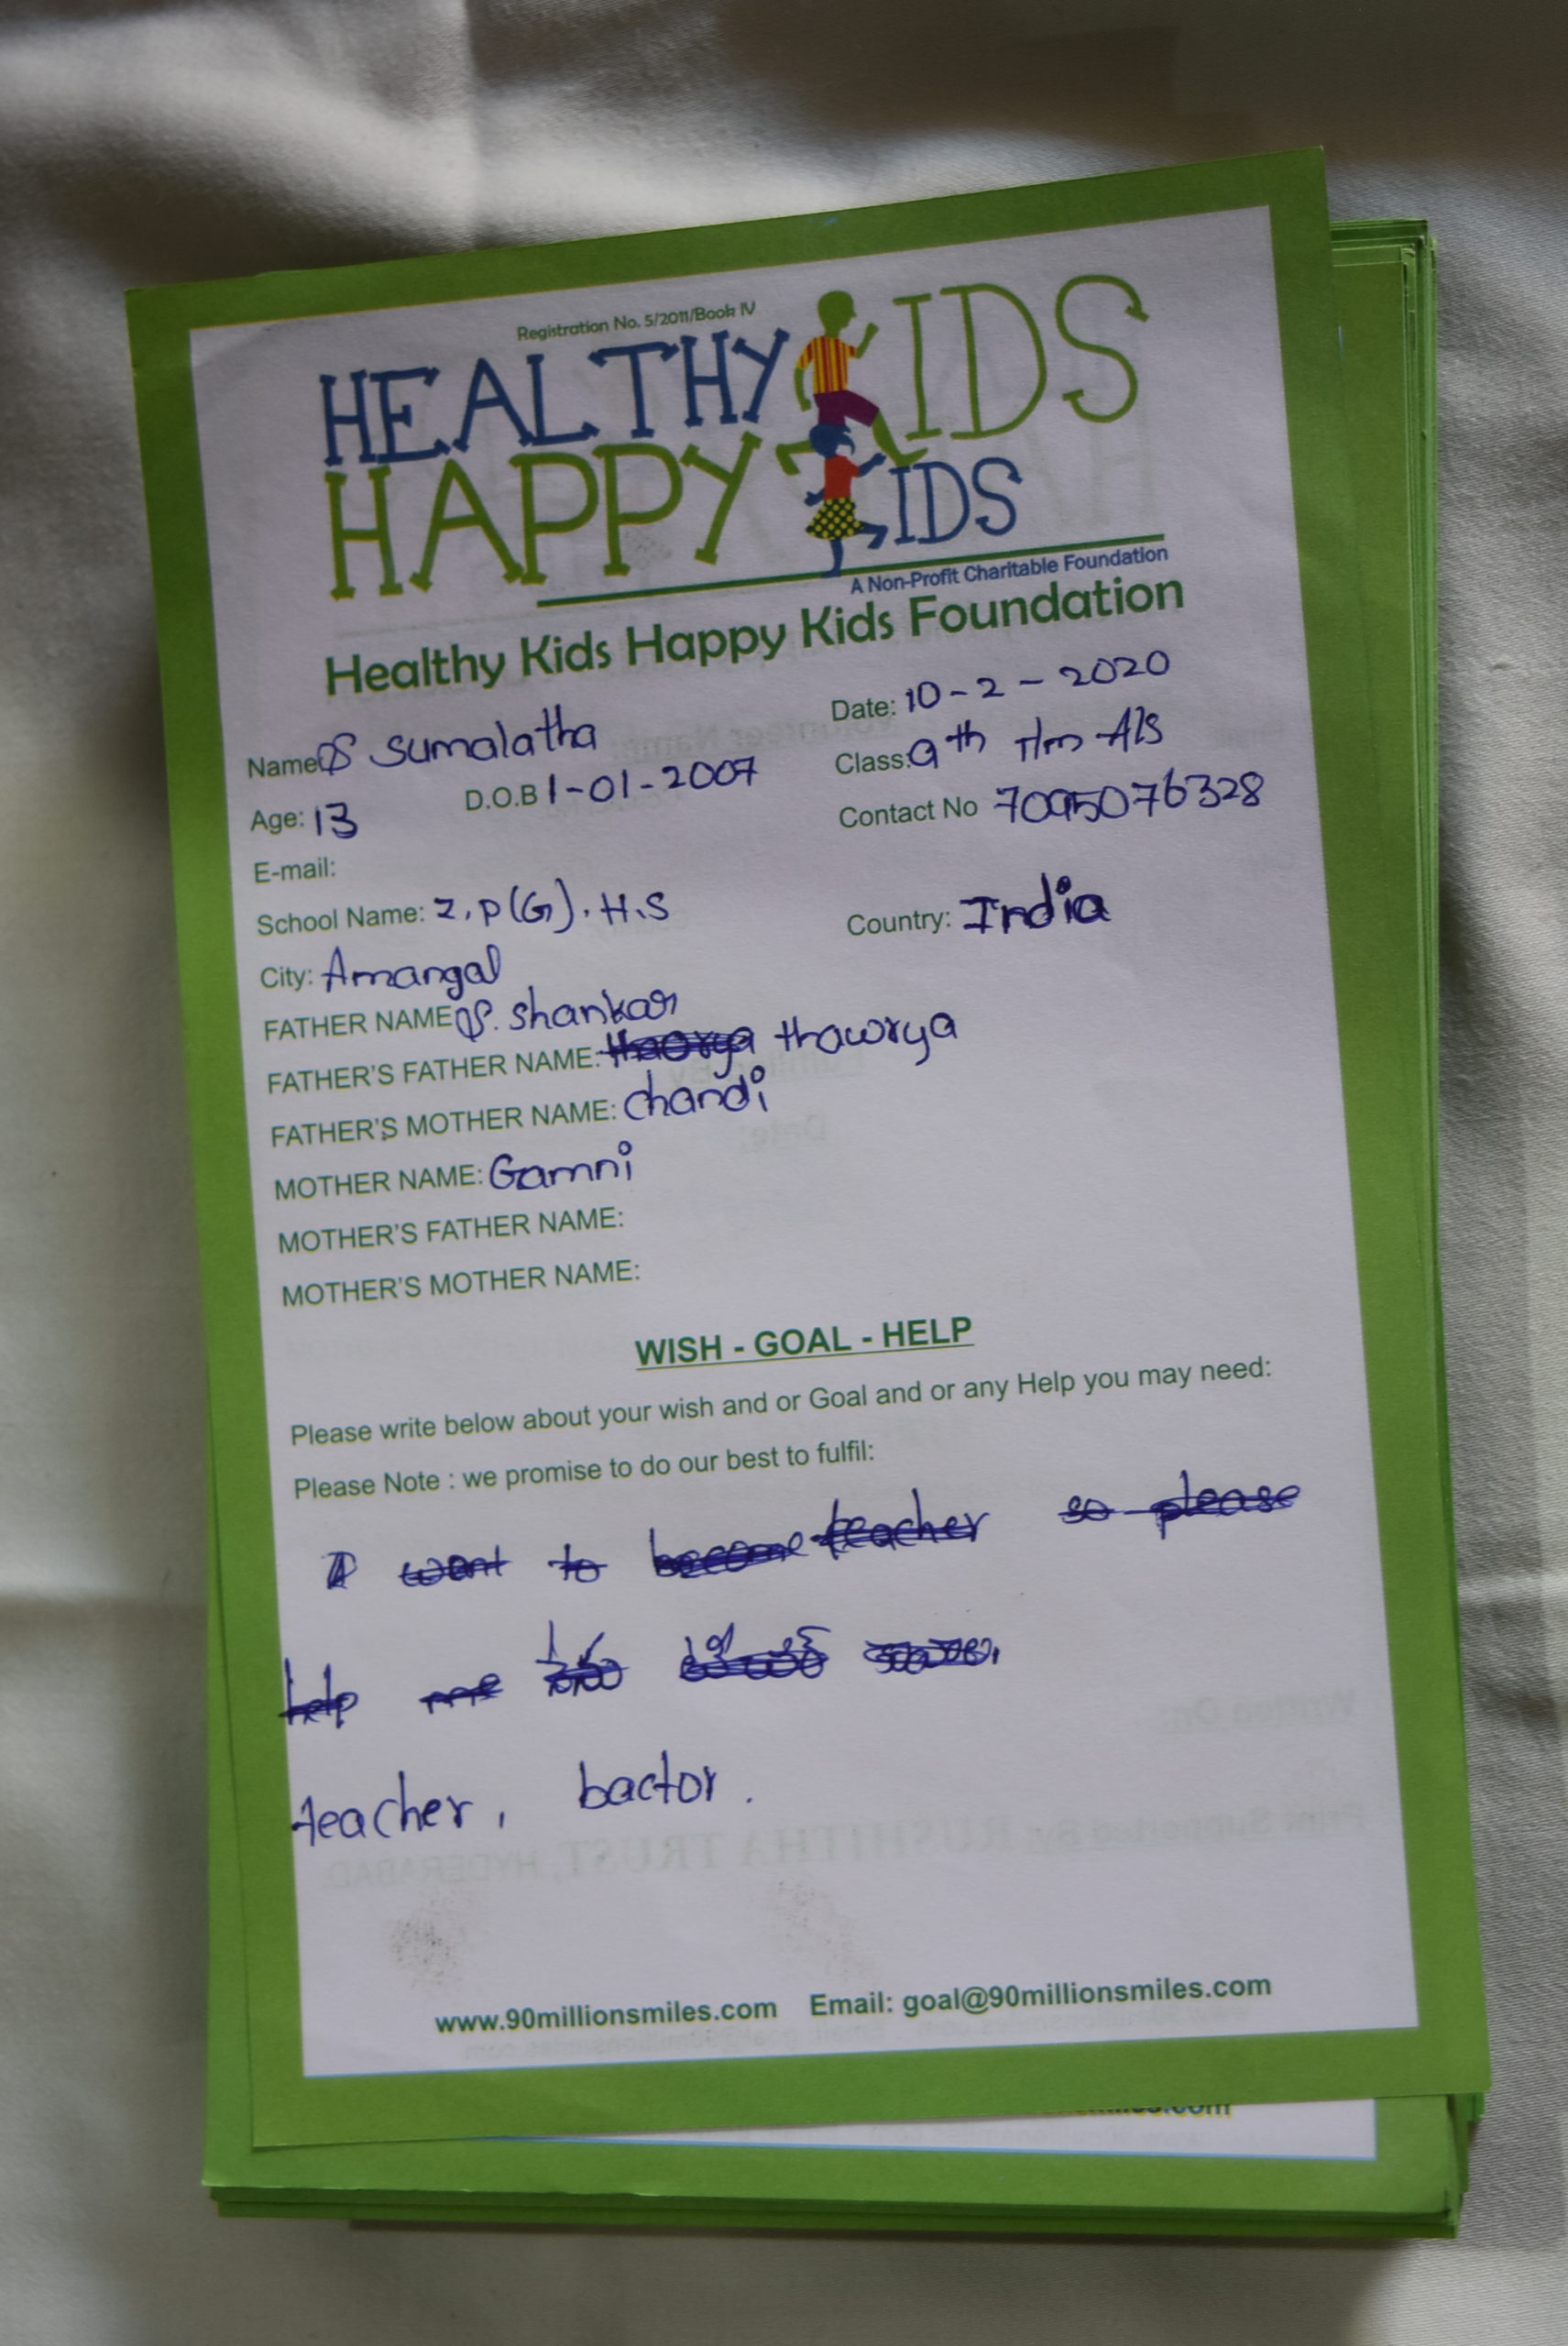 Registration No. 5/2011/Book IV
HEALTHY KIDS
HAPPY KIDS
A Non-Profit Charitable Foundation
Healthy Kids Happy Kids Foundation
Date: 10-2-2020
Name: S sumalatha
Class: 9th
Age: 13 D.O.B 1-01-2007
Contact No 7095076328
E-mail:
School Name: Z.P(G).H.S
Country: India
City: Amangal
FATHER NAME S. shankar
FATHER'S FATHER NAME: thaorya thawrya
FATHER'S MOTHER NAME: chandi
MOTHER NAME: Gamni
MOTHER'S FATHER NAME:
MOTHER'S MOTHER NAME:
WISH - GOAL - HELP
Please write below about your wish and or Goal and or any Help you may need:
Please Note : we promise to do our best to fulfil:
I want to become teacher so please
help me
teacher, bactor.
www.90millionsmiles.com Email: goal@90millionsmiles.com